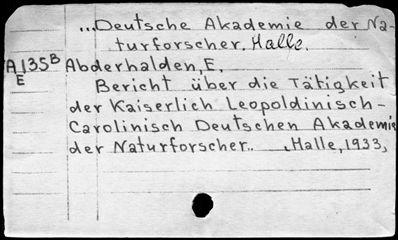 ...Deutsche Akademie der Na-
turforscher. Halle.
A135B Abderhalden, E.
E Bericht über die Tätigkeit
der Kaiserlich Leopoldinisch-
Carolinisch Deutschen Akademie
der Naturforscher.. Halle, 1933,